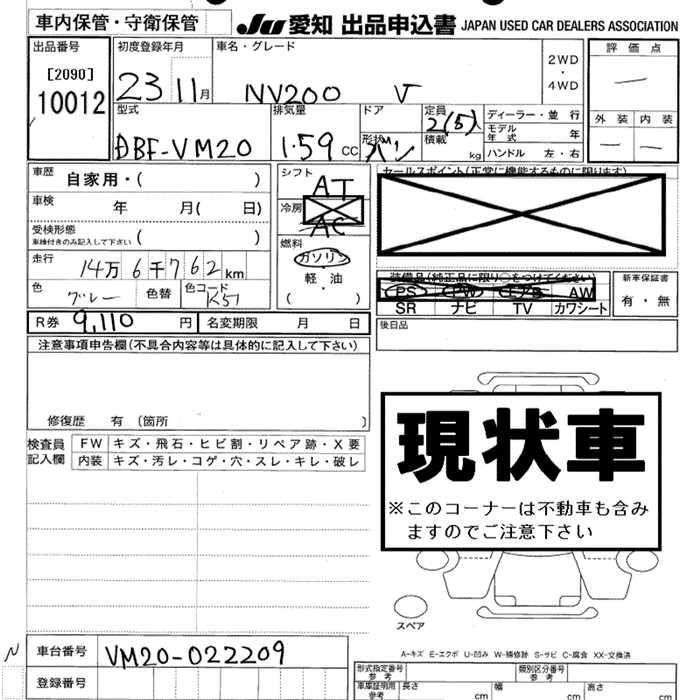 車内保管・守衛保管 JU 愛知 出品申込書 JAPAN USED CAR DEALERS ASSOCIATION
出品番号 初度登録年月 車名・グレード 2WD・4WD 評価点
[2090] 10012 23 11月 NV200 V
型式 排気量 ドア 定員 2(5) ディーラー・並行 外装 内装
DBF-VM20 1.59 CC 形状 バン 積載 kg モデル年式 年
ハンドル 左・右
車歴 自家用・( ) シフト AT セールスポイント(正常に機能するものに限ります)
車検 年 月( 日) 冷房 AC
受検形態 車検付きのみ記入して下さい ( )
燃料 ガソリン
走行 14万6千762km 軽・油 装備品(純正品に限り○をつけてください) 新車保証書
色 グレー 色替 色コード K51 ( ) PS PW エアB AW 有・無
SR ナビ TV カワシート
R券 9,110円 名変期限 月 日 後日品
注意事項申告欄(不具合内容等は具体的に記入して下さい)
現状車
修復歴 有 (箇所 )
検査員記入欄 FW キズ・飛石・ヒビ割・リペア跡・X要
内装 キズ・汚レ・コゲ・穴・スレ・キレ・破レ
※このコーナーは不動車も含み
ますのでご注意下さい
スペア
A-キズ E-エクボ U-凹み W-補修跡 S-サビ C-腐食 XX-交換済
N 車台番号 VM20-022209 形式指定番号 参考 類別区分番号 参考
登録番号 車庫証明用 参考 長さ cm 幅 cm 高さ cm